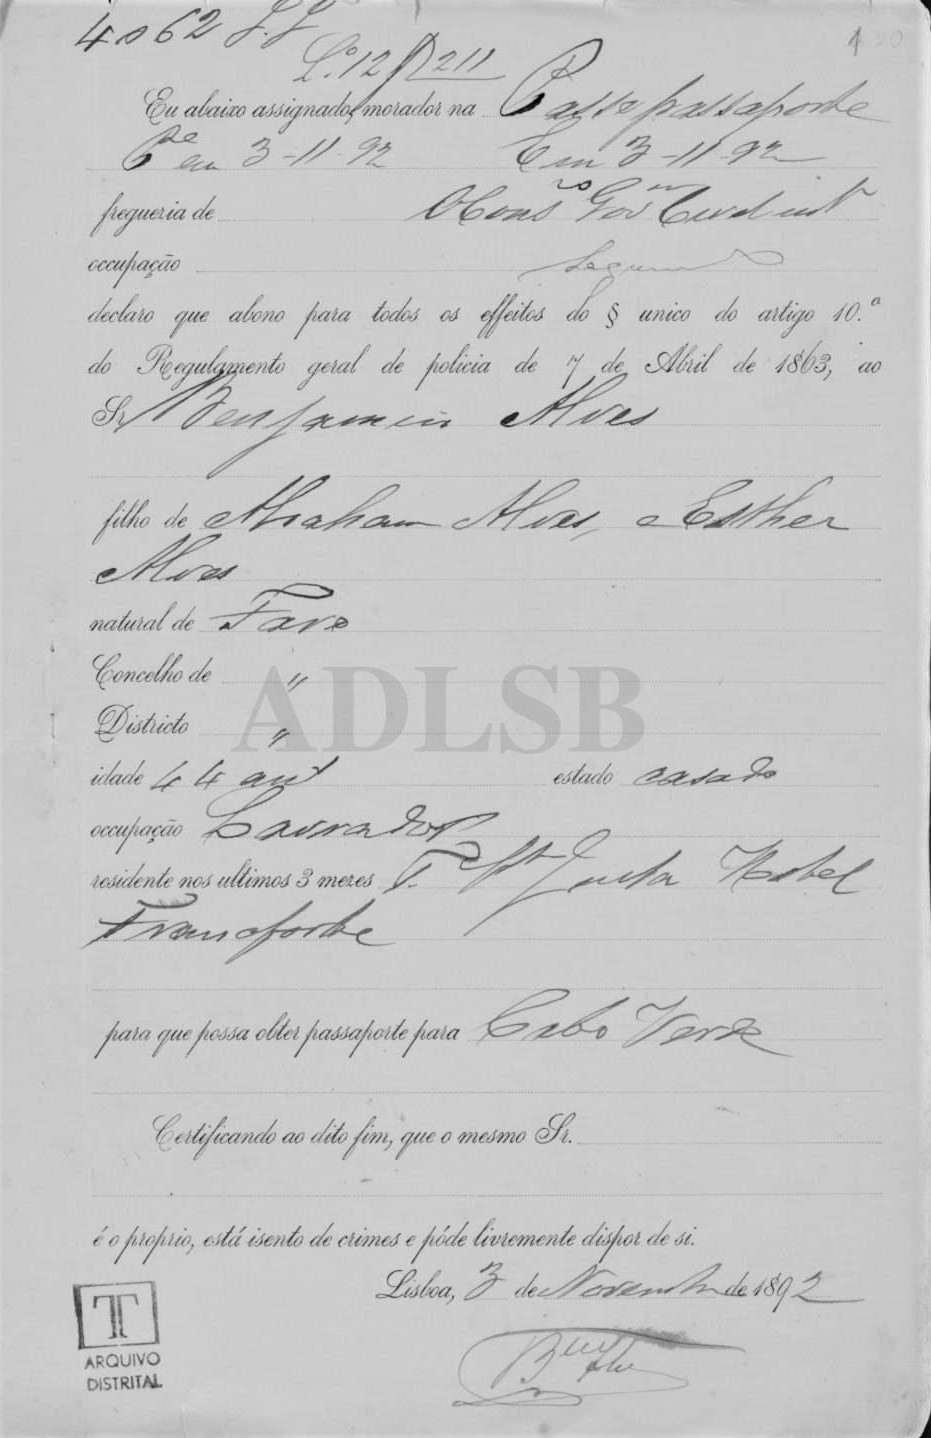 4062
L.º 12 211
Eu abaixo assignado, morador na Passe passaporte
P.te em 3-11-92 Em 3-11-92
freguezia de O Cons.ro Gov.or Civil
occupação
declaro que abono para todos os effeitos do § unico do artigo 10.º
do Regulamento geral de policia de 7 de Abril de 1863, ao
Sr. Benjamin Alves
filho de Abraham Alves, e Esther
Alves
natural de Faro
Concelho de "
Districto "
ADLSB
idade 44 an estado casado
occupação Lavrador
residente nos ultimos 3 mezes T. St.ª Justa Hotel
Francforte
para que possa obter passaporte para Cabo Verde
Certificando ao dito fim, que o mesmo Sr.
é o proprio, está isento de crimes e póde livremente dispor de si.
Lisboa, 3 de Novembro de 1892
TT
ARQUIVO
DISTRITAL